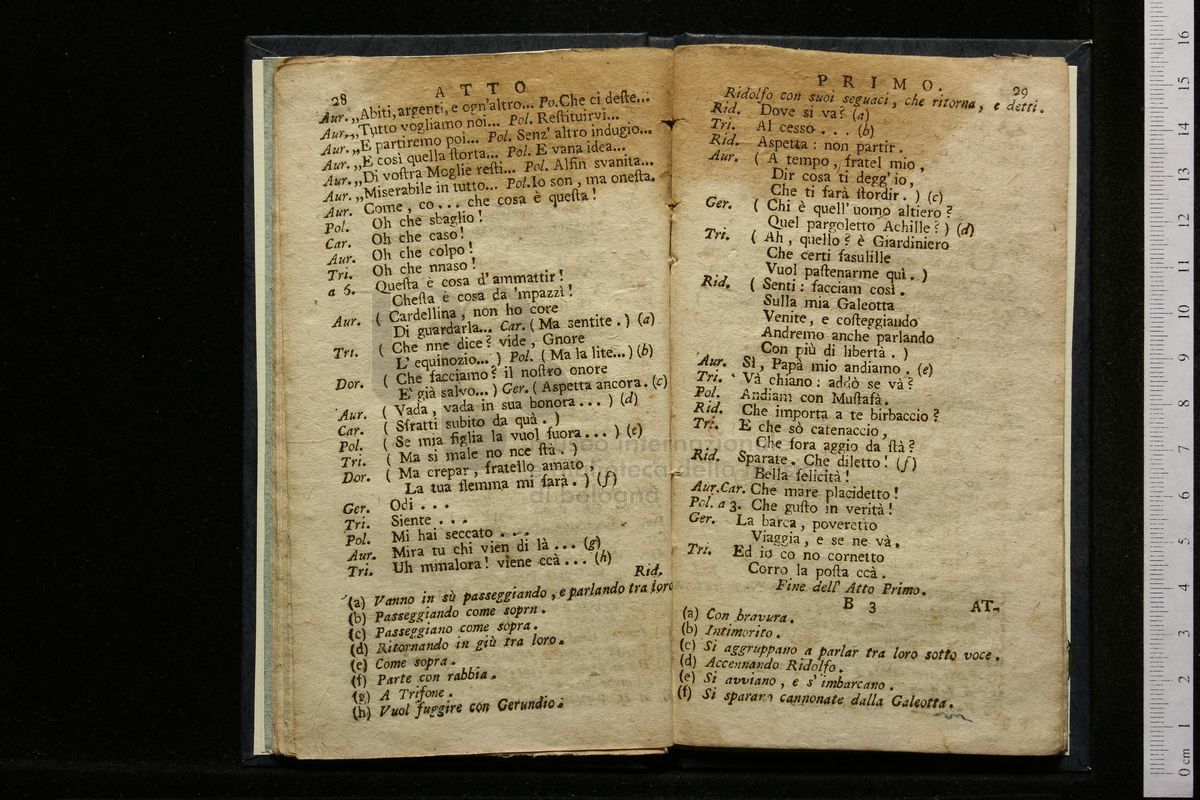 28 ATTO
Aur. „Abiti, argenti, e ogn'altro... Po. Che ci deste...
Aur. „Tutto vogliamo noi... Pol. Restituirvi...
Aur. „E partiremo poi... Pol. Senz' altro indugio...
Aur. „E così quella storta... Pol. E vana idea...
Aur. „Di vostra Moglie resti... Pol. Alfin svanita...
Aur. „Miserabile in tutto... Pol. Io son, ma onesta.
Aur. Come, co... che cosa è questa!
Pol. Oh che sbaglio!
Car. Oh che caso!
Aur. Oh che colpo!
Tri. Oh che nnaso!
a 5. Questa è cosa d'ammattir!
Chesta è cosa da 'mpazzì!
Aur. ( Cardellina, non ho core
Di guardarla... Car. ( Ma sentite. ) (a)
Tri. ( Che nne dice? vide, Gnore
L'equinozio... ) Pol. ( Ma la lite...) (b)
Dor. ( Che facciamo? il nostro onore
E' già salvo... ) Ger. ( Aspetta ancora. (c)
Aur. ( Vada, vada in sua bonora... ) (d)
Car. ( Sfratti subito da quà. )
Pol. ( Se mia figlia la vuol fuora... ) (e)
Tri. ( Ma si male no nce stà. )
Dor. ( Ma crepar, fratello amato,
La tua flemma mi farà. ) (f)
Ger. Odi...
Tri. Siente...
Pol. Mi hai seccato...
Aur. Mira tu chi vien di là... (g)
Tri. Uh mmalora! viene ccà... (h)
Rid.
(a) Vanno in sù passeggiando, e parlando tra loro
(b) Passeggiando come soprn.
(c) Passeggiano come sopra.
(d) Ritornando in giù tra loro.
(e) Come sopra.
(f) Parte con rabbia.
(g) A Trifone.
(h) Vuol fuggire con Gerundio.
PRIMO. 29
Ridolfo con suoi seguaci, che ritorna, e detti.
Rid. Dove si va? (a)
Tri. Al cesso... (b)
Rid. Aspetta: non partir.
Aur. ( A tempo, fratel mio,
Dir cosa ti degg'io,
Che ti farà stordir. ) (c)
Ger. ( Chi è quell'uomo altiero?
Quel pargoletto Achille? ) (d)
Tri. ( Ah, quello? è Giardiniero
Che certi fasulille
Vuol pastenarme quì. )
Rid. ( Senti: facciam così.
Sulla mia Galeotta
Venite, e costeggiando
Andremo anche parlando
Con più di libertà. )
Aur. Sì, Papà mio andiamo. (e)
Tri. Và chiano: addò se và?
Pol. Andiam con Mustafà.
Rid. Che importa a te birbaccio?
Tri. E che sò catenaccio,
Che fora aggio da stà?
Rid. Sparate. Che diletto! (f)
Bella felicità!
Aur. Car. Che mare placidetto!
Pol. a 3. Che gusto in verità!
Ger. La barca, poveretto
Viaggia, e se ne và.
Tri. Ed io co no cornetto
Corro la posta ccà.
Fine dell' Atto Primo.
B 3 AT-
(a) Con bravura.
(b) Intimorito.
(c) Si aggruppano a parlar tra loro sotto voce.
(d) Accennando Ridolfo.
(e) Si avviano, e s'imbarcano.
(f) Si sparano cannonate dalla Galeotta.
museo internazionale
e biblioteca della musica
di bologna
0 cm 1 2 3 4 5 6 7 8 9 10 11 12 13 14 15 16